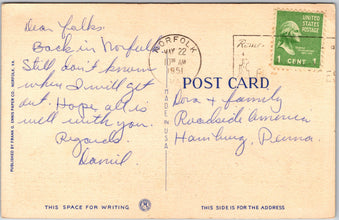 Dear folks.
Back in Norfolk
Still don't know
when I will get
out. Hope all is
well with you.
Regards.
Daniel.
NORFOLK
MAY 22
10 AM
1951
UNITED
STATES
POSTAGE
1 CENT 1
POST CARD
Dora & family
Roadside America
Hamburg, Penna.
MADE IN U S A
PUBLISHED BY FRANK E. DAVIS PAPER CO., NORFOLK, VA.
THIS SPACE FOR WRITING
THIS SIDE IS FOR THE ADDRESS